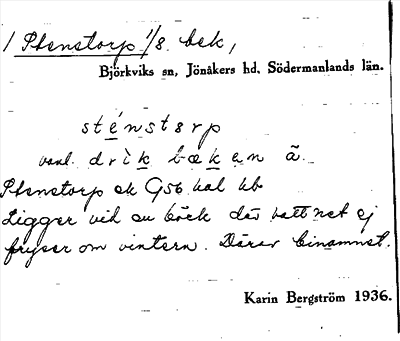 1 Stenstorp 1/8 bek,
Björkviks sn, Jönåkers hd, Södermanlands län.
sténstɵrp
vanl. drìk bækən ä.
Stenstorp ek G56 kal kb
Ligger vid en bäck där vattnet ej
fryser om vintern. Därav binamnet.
Karin Bergström 1936.